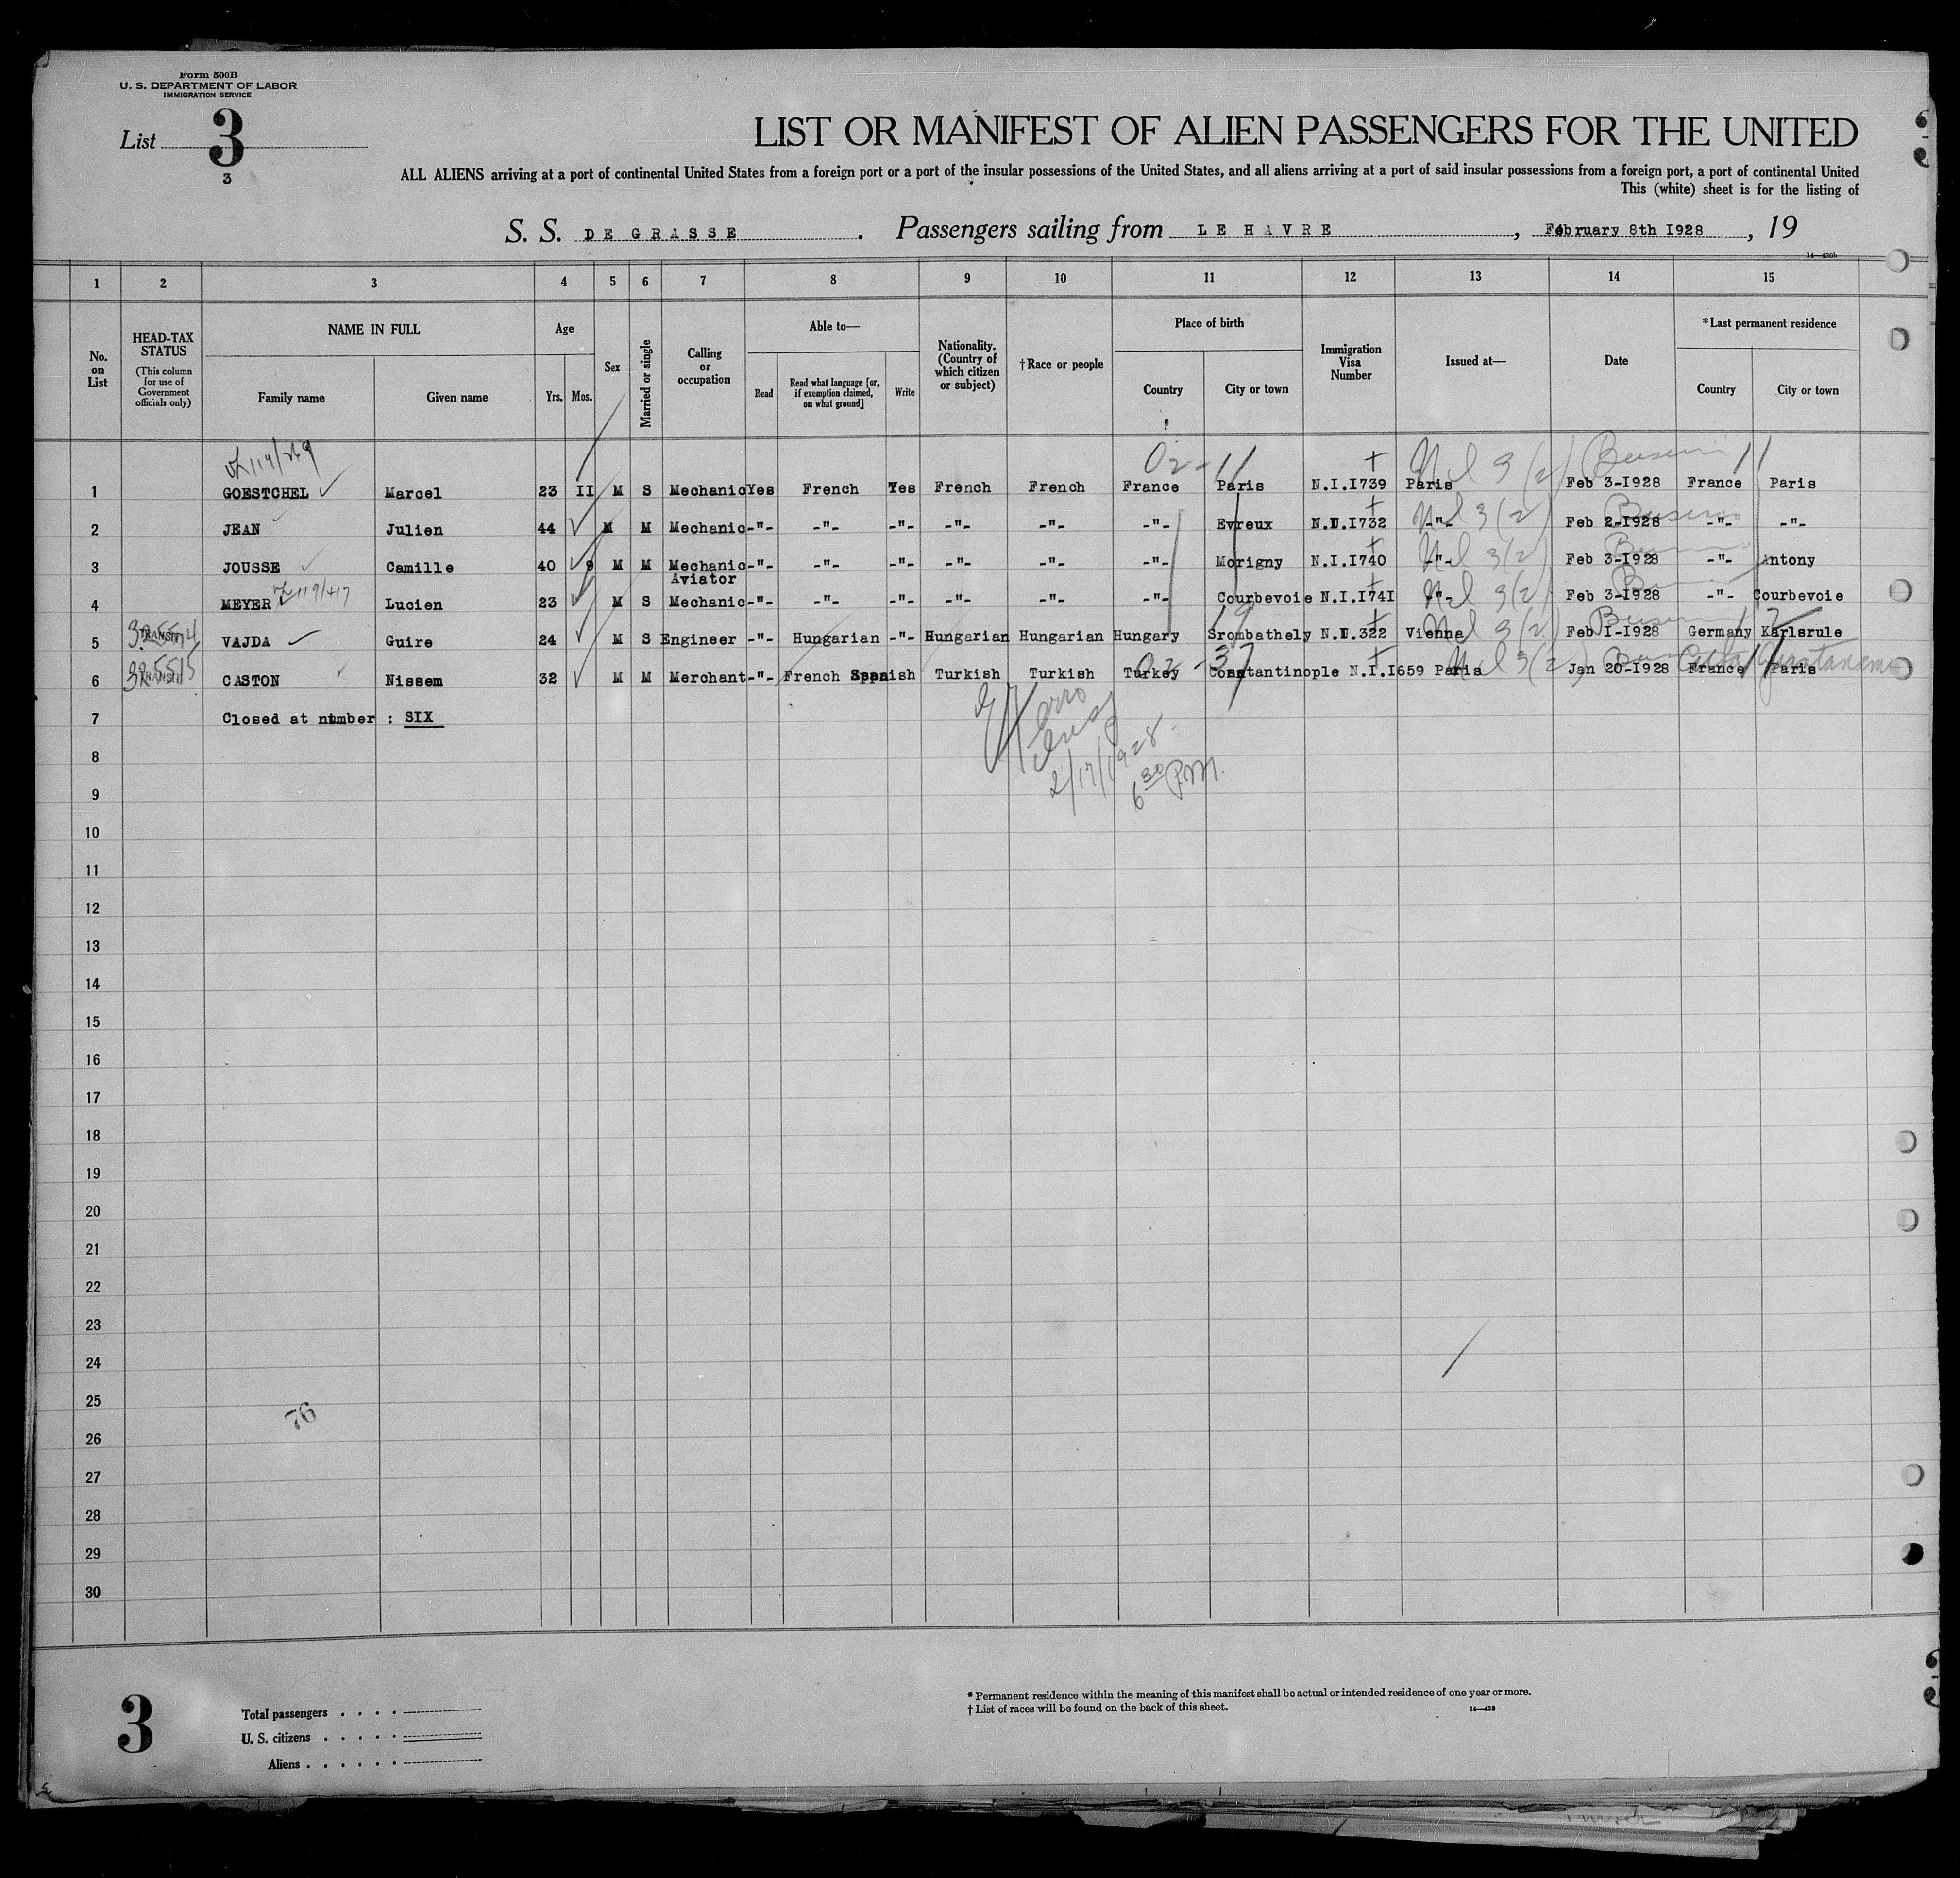 Form 500B
U. S. DEPARTMENT OF LABOR
IMMIGRATION SERVICE
List 3
3
LIST OR MANIFEST OF ALIEN PASSENGERS FOR THE UNITED
ALL ALIENS arriving at a port of continental United States from a foreign port or a port of the insular possessions of the United States, and all aliens arriving at a port of said insular possessions from a foreign port, a port of continental United
This (white) sheet is for the listing of
S. S. DE GRASSE . Passengers sailing from LE HAVRE , February 8th I928 , 19
1 2 3 4 5 6 7 8 9 10 11 12 13 14 15
No. on List
HEAD-TAX STATUS
(This column for use of Government officials only)
NAME IN FULL
Family name Given name
Age
Yrs. Mos.
Sex
Married or single
Calling or occupation
Able to—
Read Read what language [or, if exemption claimed, on what ground] Write
Nationality. (Country of which citizen or subject)
†Race or people
Place of birth
Country City or town
Immigration Visa Number
Issued at—
Date
*Last permanent residence
Country City or town
02-11
1 GOESTCHEL Marcel 23 II M S Mechanic Yes French Yes French French France Paris N.I.I739 Paris Feb 3-I928 France Paris
2 JEAN Julien 44 M M Mechanic -"- -"- -"- -"- -"- -"- Evreux N.I.I732 -"- Feb 2-I928 -"- -"-
3 JOUSSE Camille 40 9 M M Mechanic -"- -"- -"- -"- -"- -"- Morigny N.I.I740 -"- Feb 3-I928 -"- Antony
Aviator
4 MEYER Lucien 23 M S Mechanic -"- -"- -"- -"- -"- -"- Courbevoie N.I.I74I -"- Feb 3-I928 -"- Courbevoie
5 TRANSIT VAJDA Guire 24 M S Engineer -"- Hungarian -"- Hungarian Hungarian Hungary Srombathely N.I.322 Vienna Feb I-I928 Germany Karlsrule
6 TRANSIT CASTON Nissem 32 M M Merchant -"- French Spanish Turkish Turkish Turkey Constantinople N.I.I659 Paris Jan 20-I928 France Paris
7 Closed at number : SIX
2/17/1928
6 30 P.M.
8
9
10
11
12
13
14
15
16
17
18
19
20
21
22
23
24
25
76
26
27
28
29
30
3
Total passengers
U. S. citizens
Aliens
* Permanent residence within the meaning of this manifest shall be actual or intended residence of one year or more.
† List of races will be found on the back of this sheet.